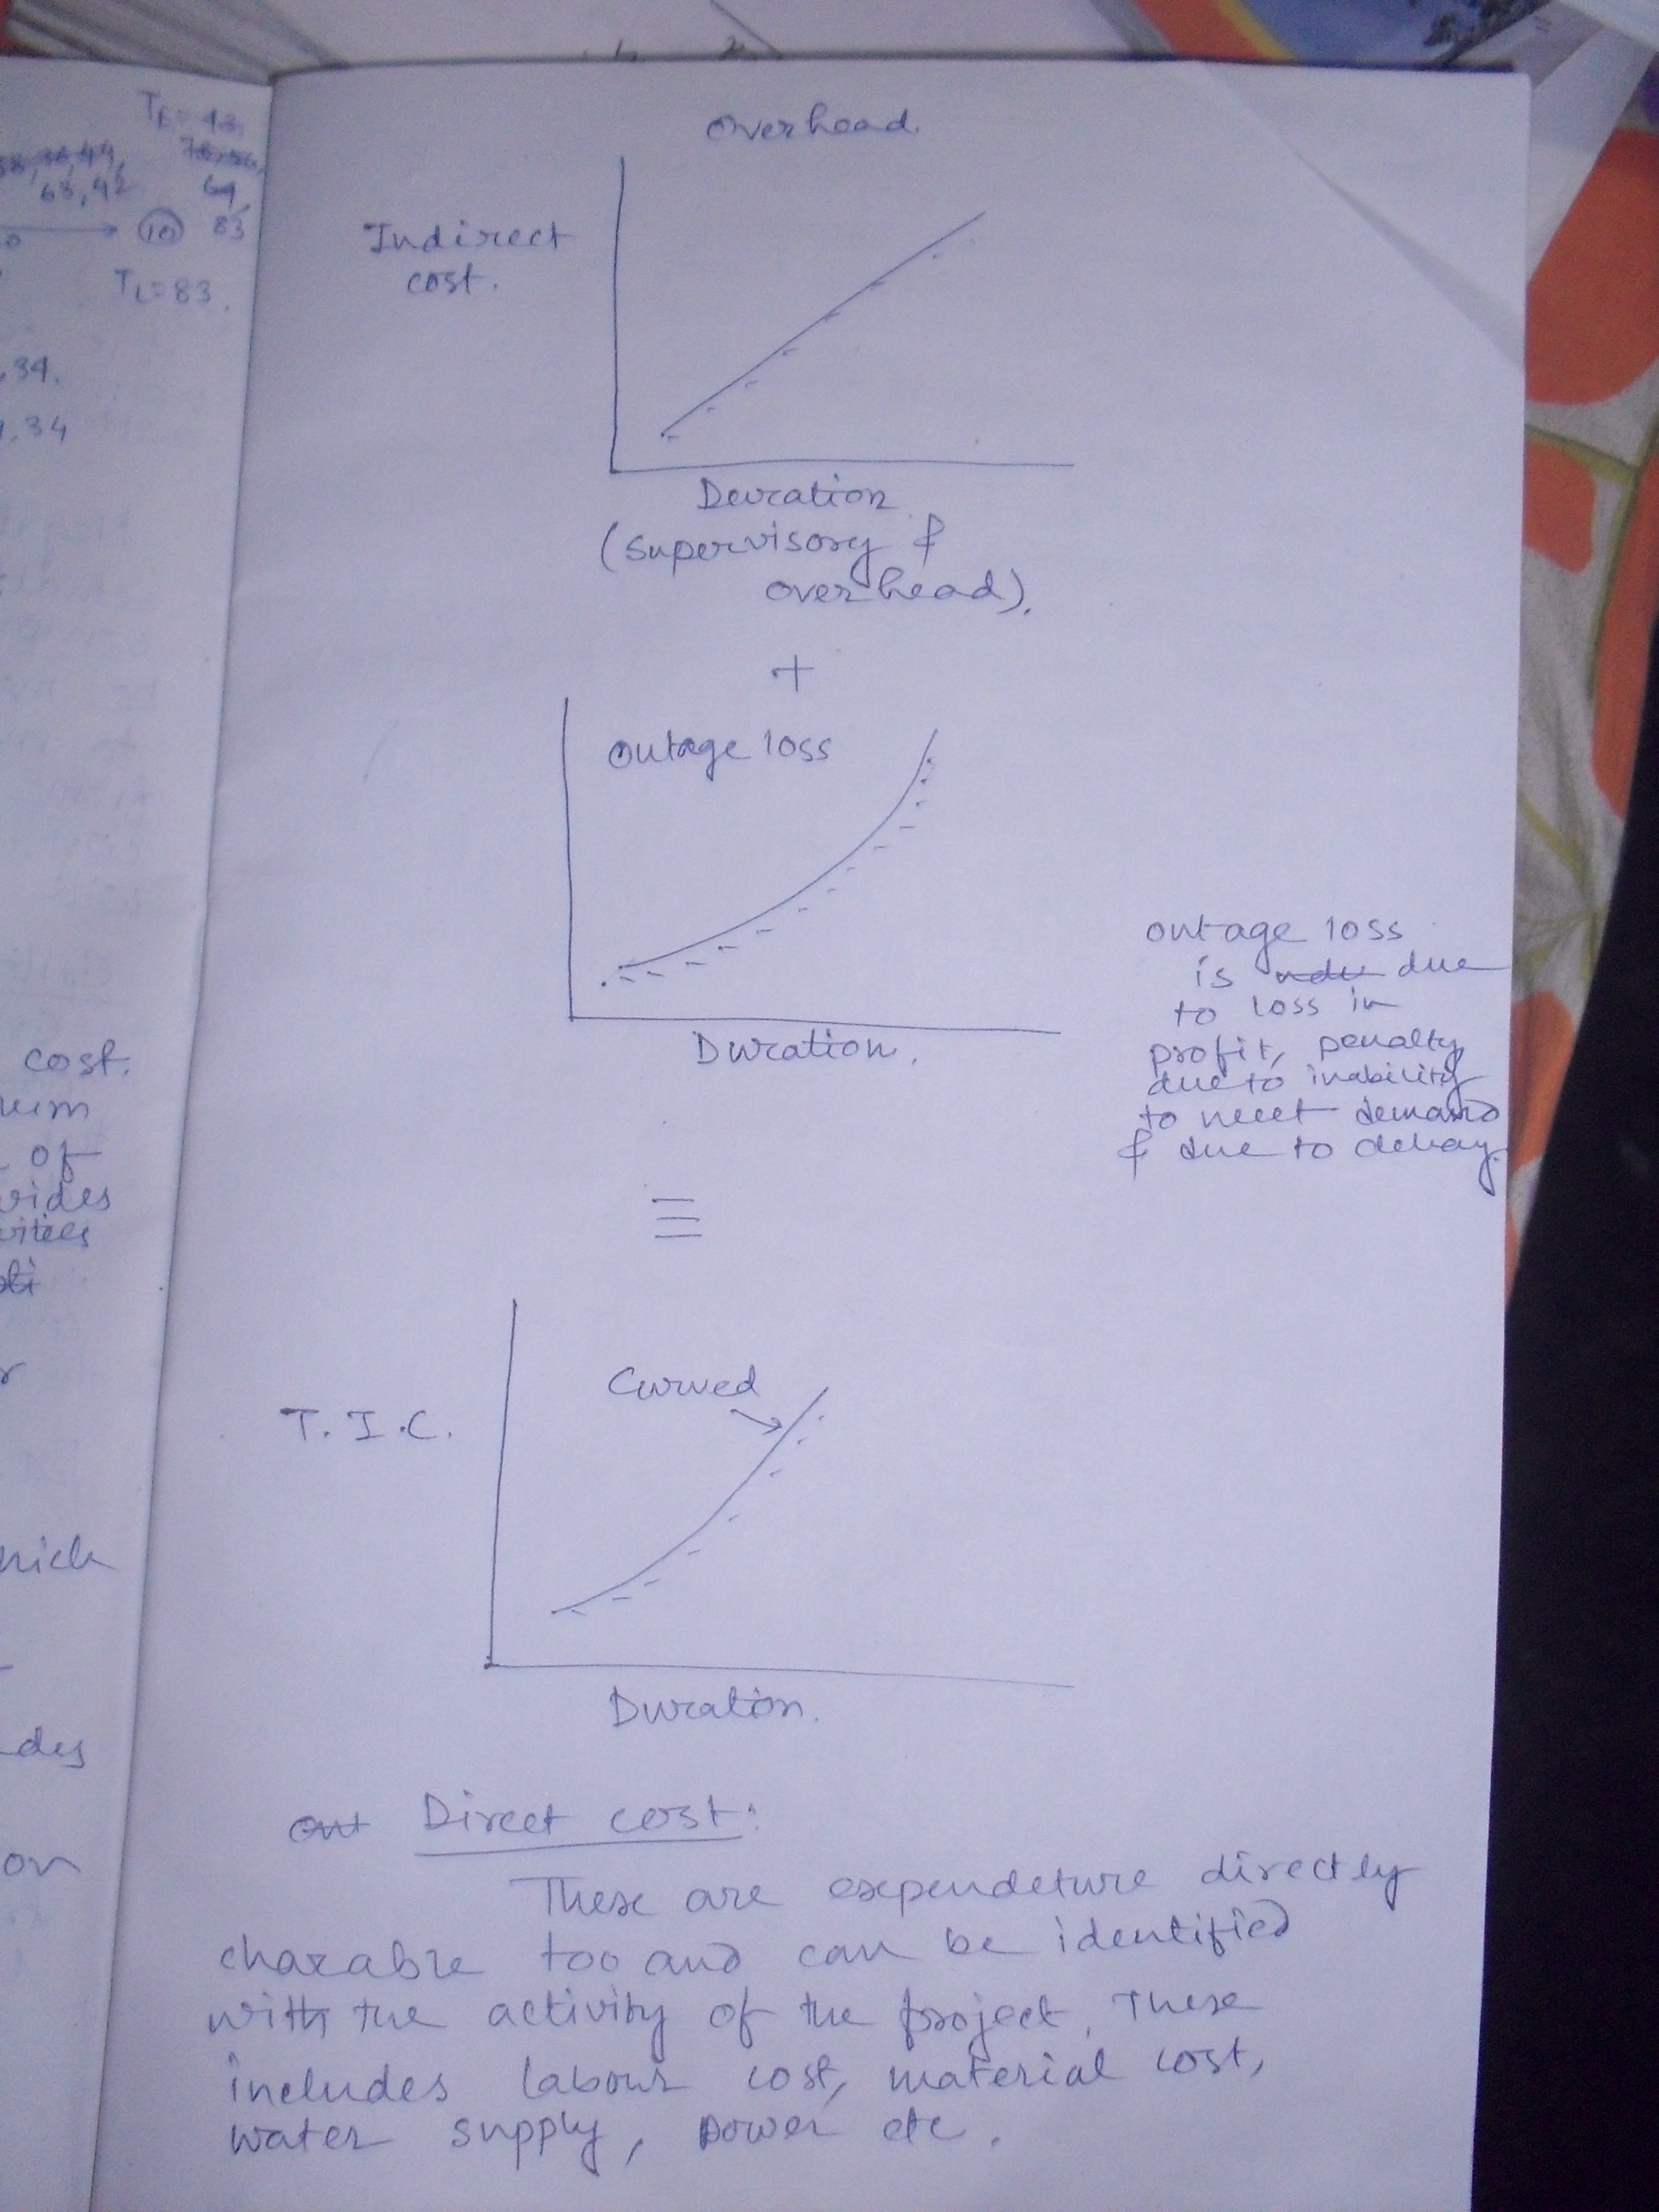 TE=43,
58,38,44,
63,42
64,
83
10
TL=83.
.34.
.34
cost.
of
vides
hich
des
on
Overhead.
Indirect
cost.
Duration
(supervisory &
overhead).
+
outage loss
Duration.
outage loss
is due
to loss in
profit, penalty
due to inability
to meet demand
& due to delay.
≡
T.I.C.
Curved
Duration.
out Direct cost:
These are expendeture directly
charable too and can be identified
with the activity of the project. These
includes labour cost, material cost,
water supply, power etc.